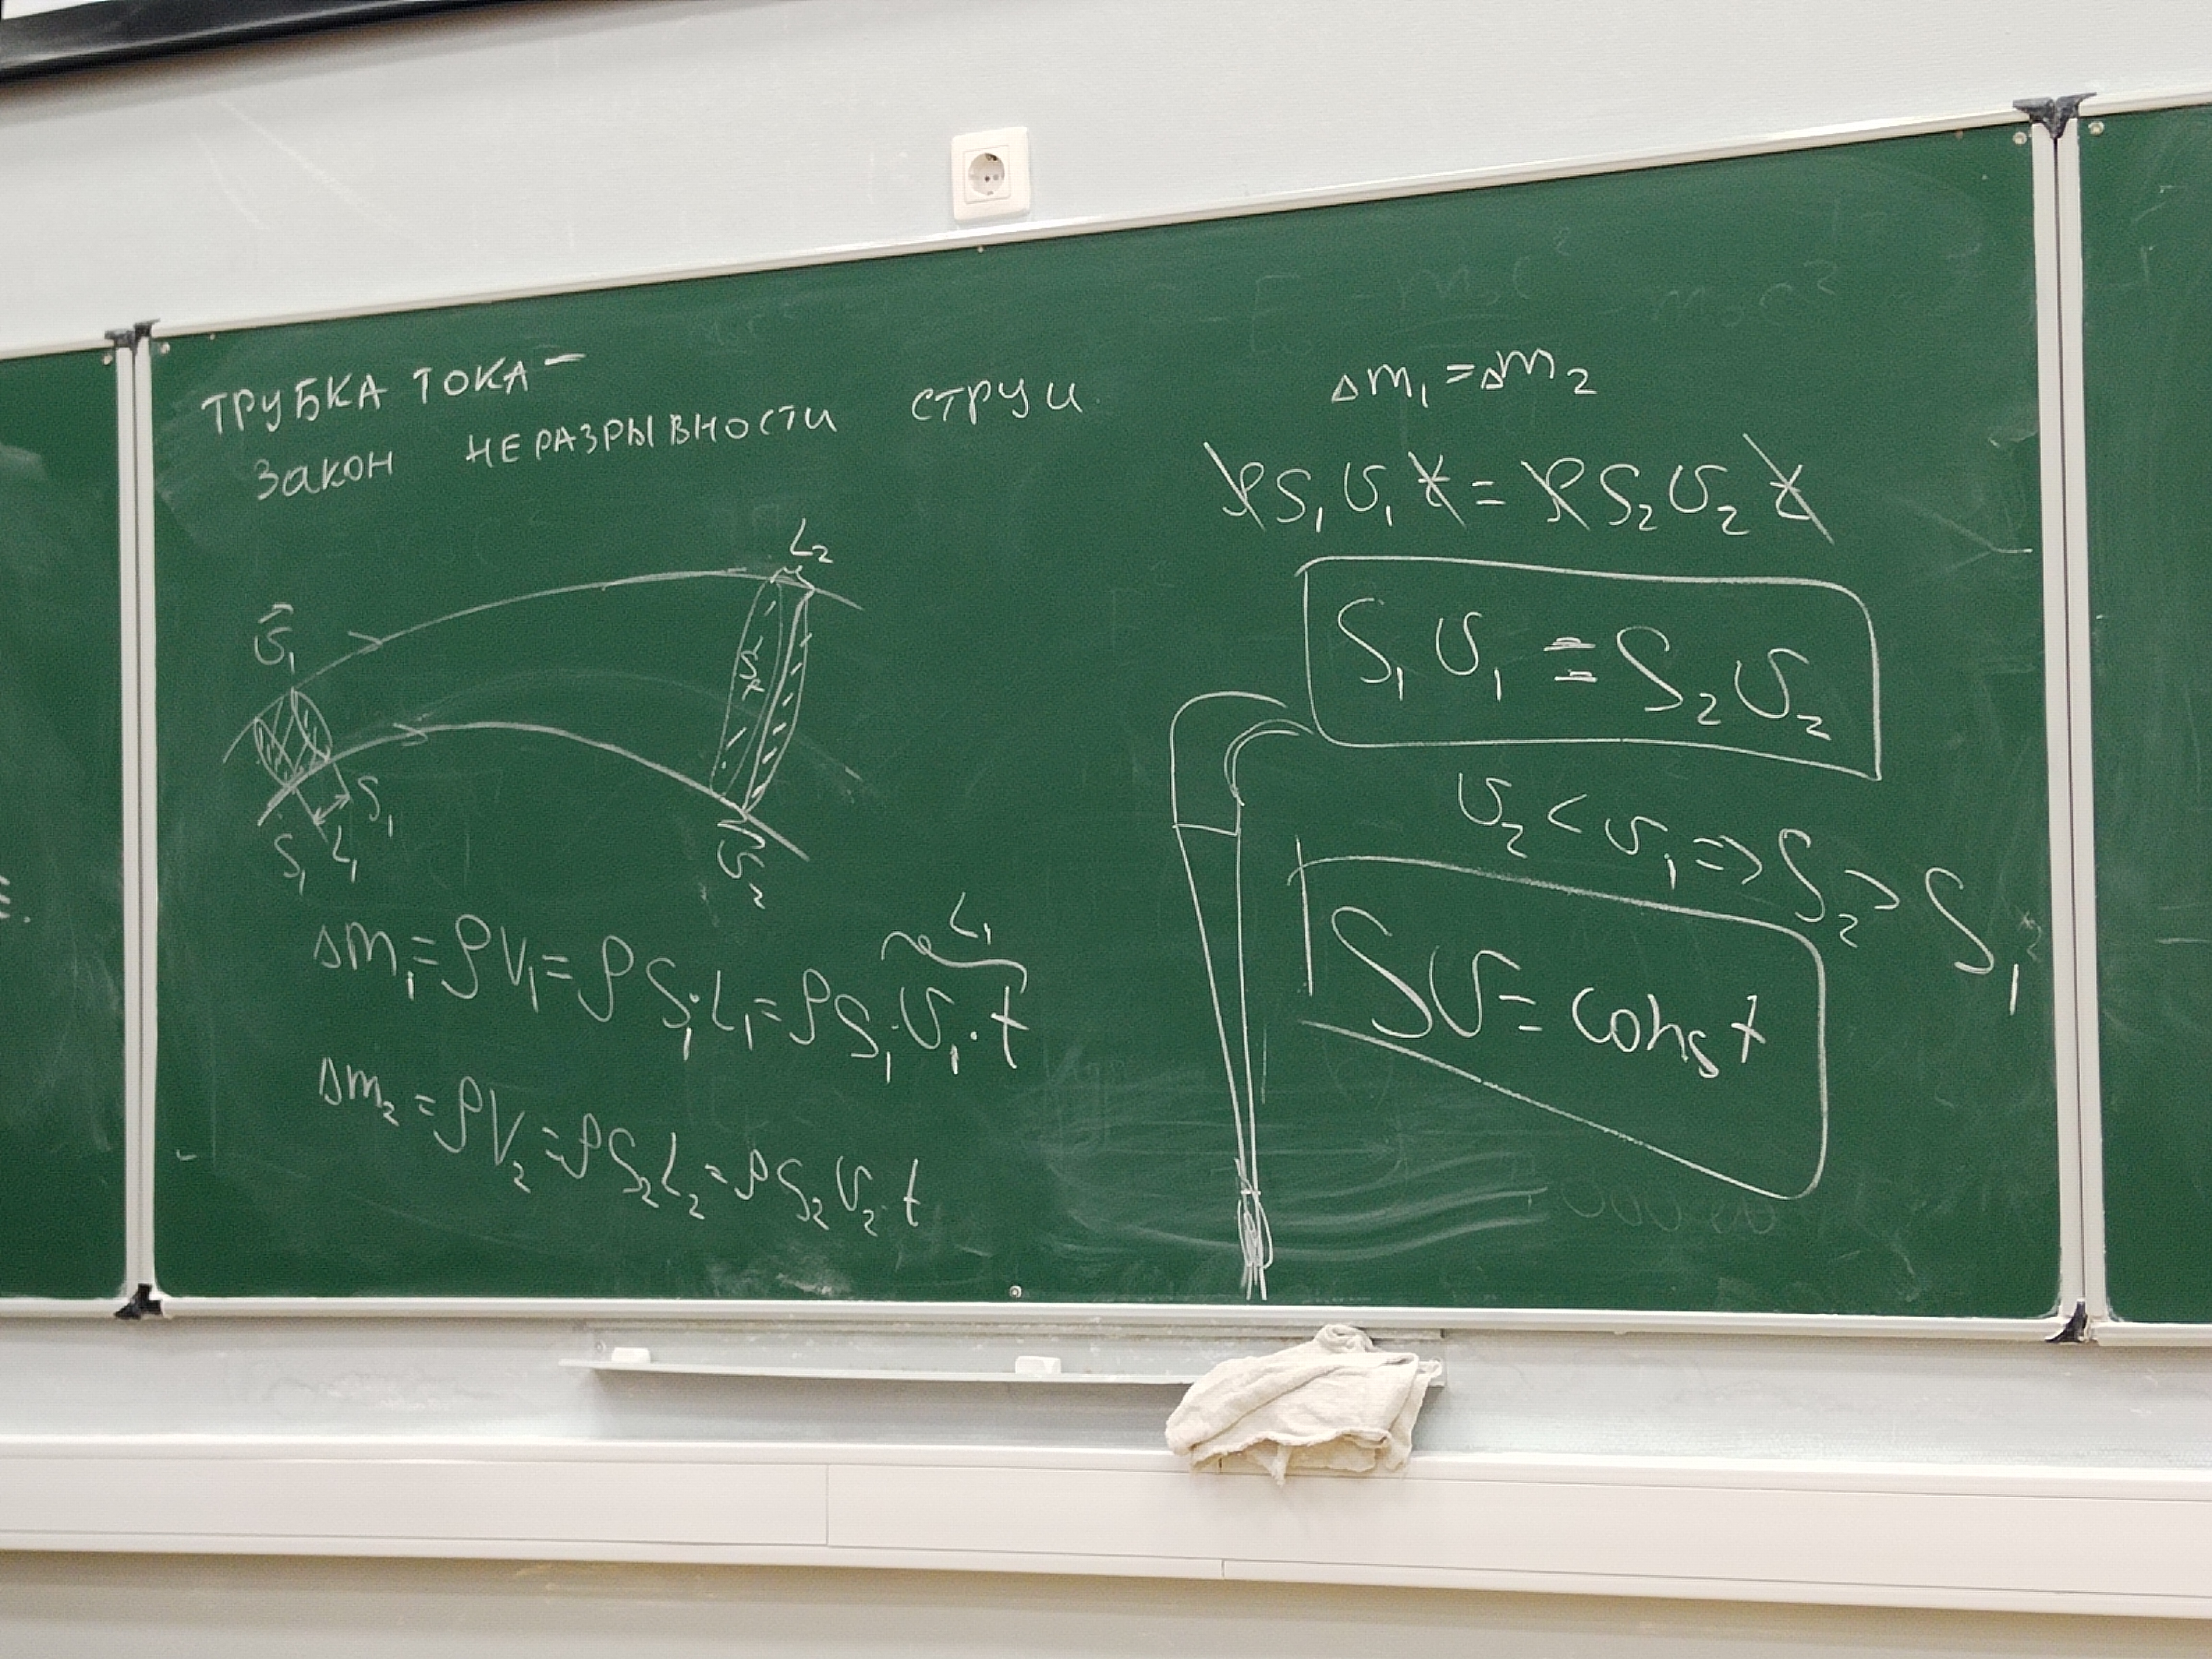 ТРУБКА ТОКА –
ЗАКОН НЕРАЗРЫВНОСТИ СТРУИ
L₂
v̄₁
S₂
S₁
S₁ L₁
v̄₂
L₁
Δm₁ = ρV₁ = ρS₁·L₁ = ρS₁·v₁·t
Δm₂ = ρV₂ = ρS₂L₂ = ρS₂v₂·t
Δm₁ = Δm₂
ρS₁v₁t = ρS₂v₂t
S₁v₁ = S₂v₂
v₂ < v₁ => S₂ > S₁
Sv = const